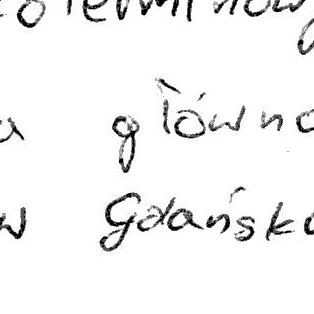 oterminow
a główno
w Gdańsk